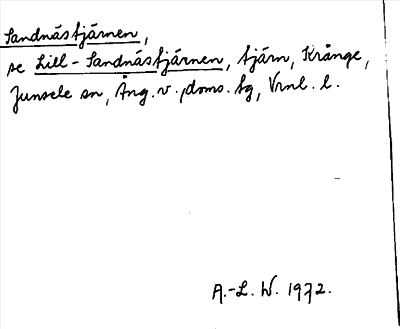 Sandnästjärnen,
se Lill-Sandnästjärnen, tjärn, Krånge,
Junsele sn, Ång. v. doms. tg, Vrnl. l.
A.-L. W. 1972.